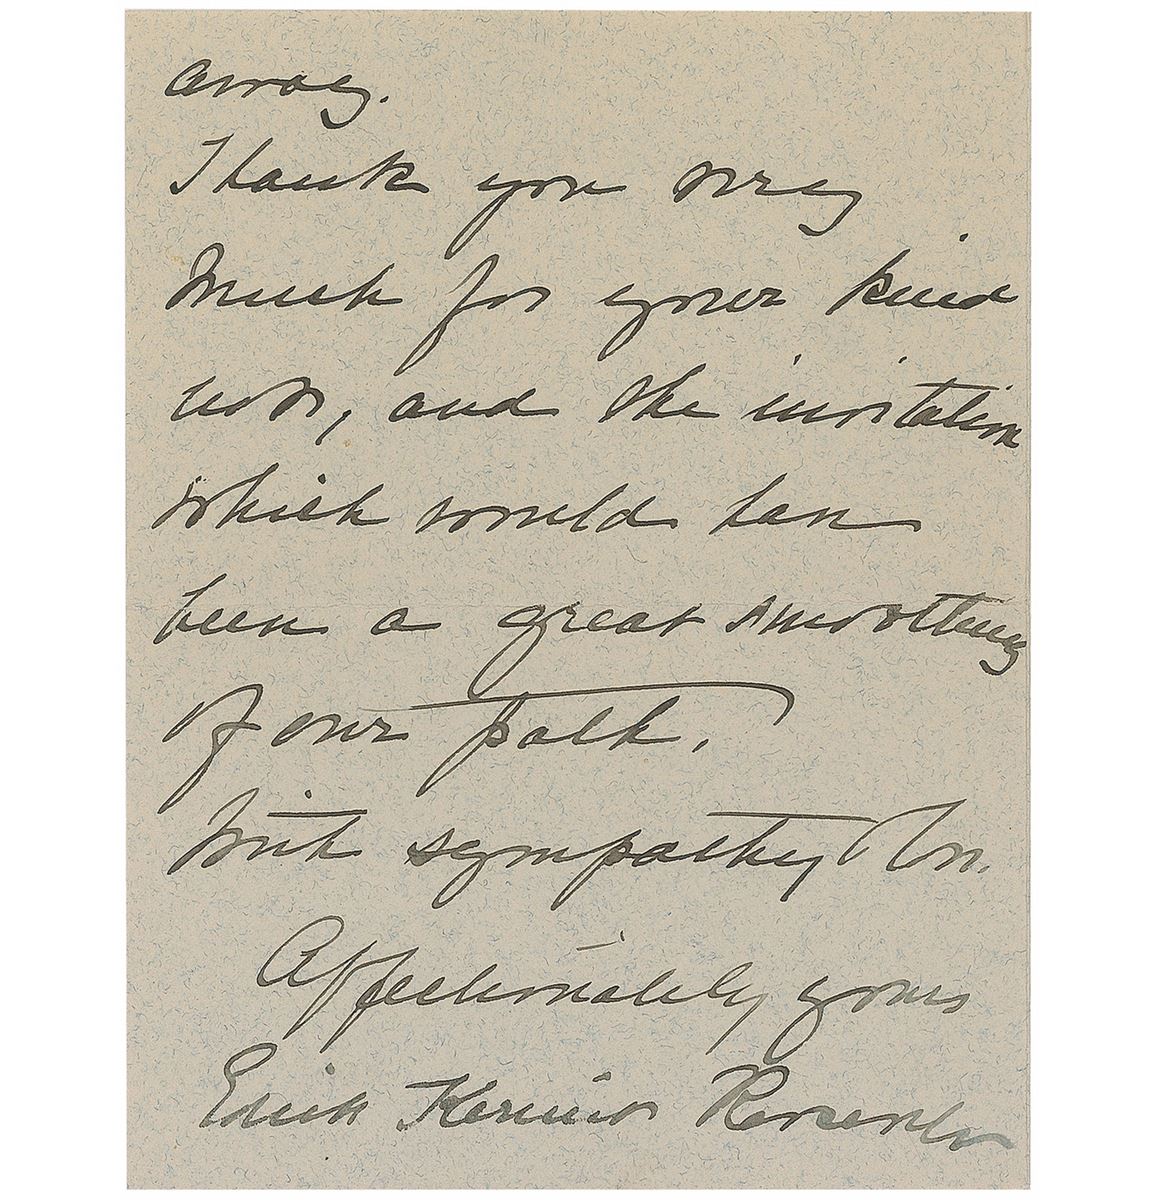 away.
Thank you very
much for your kind
note, and the invitation
which would have
been a great smoothing
of our path.
With sympathy &
Affectionately yours
Edith Kermit Roosevelt